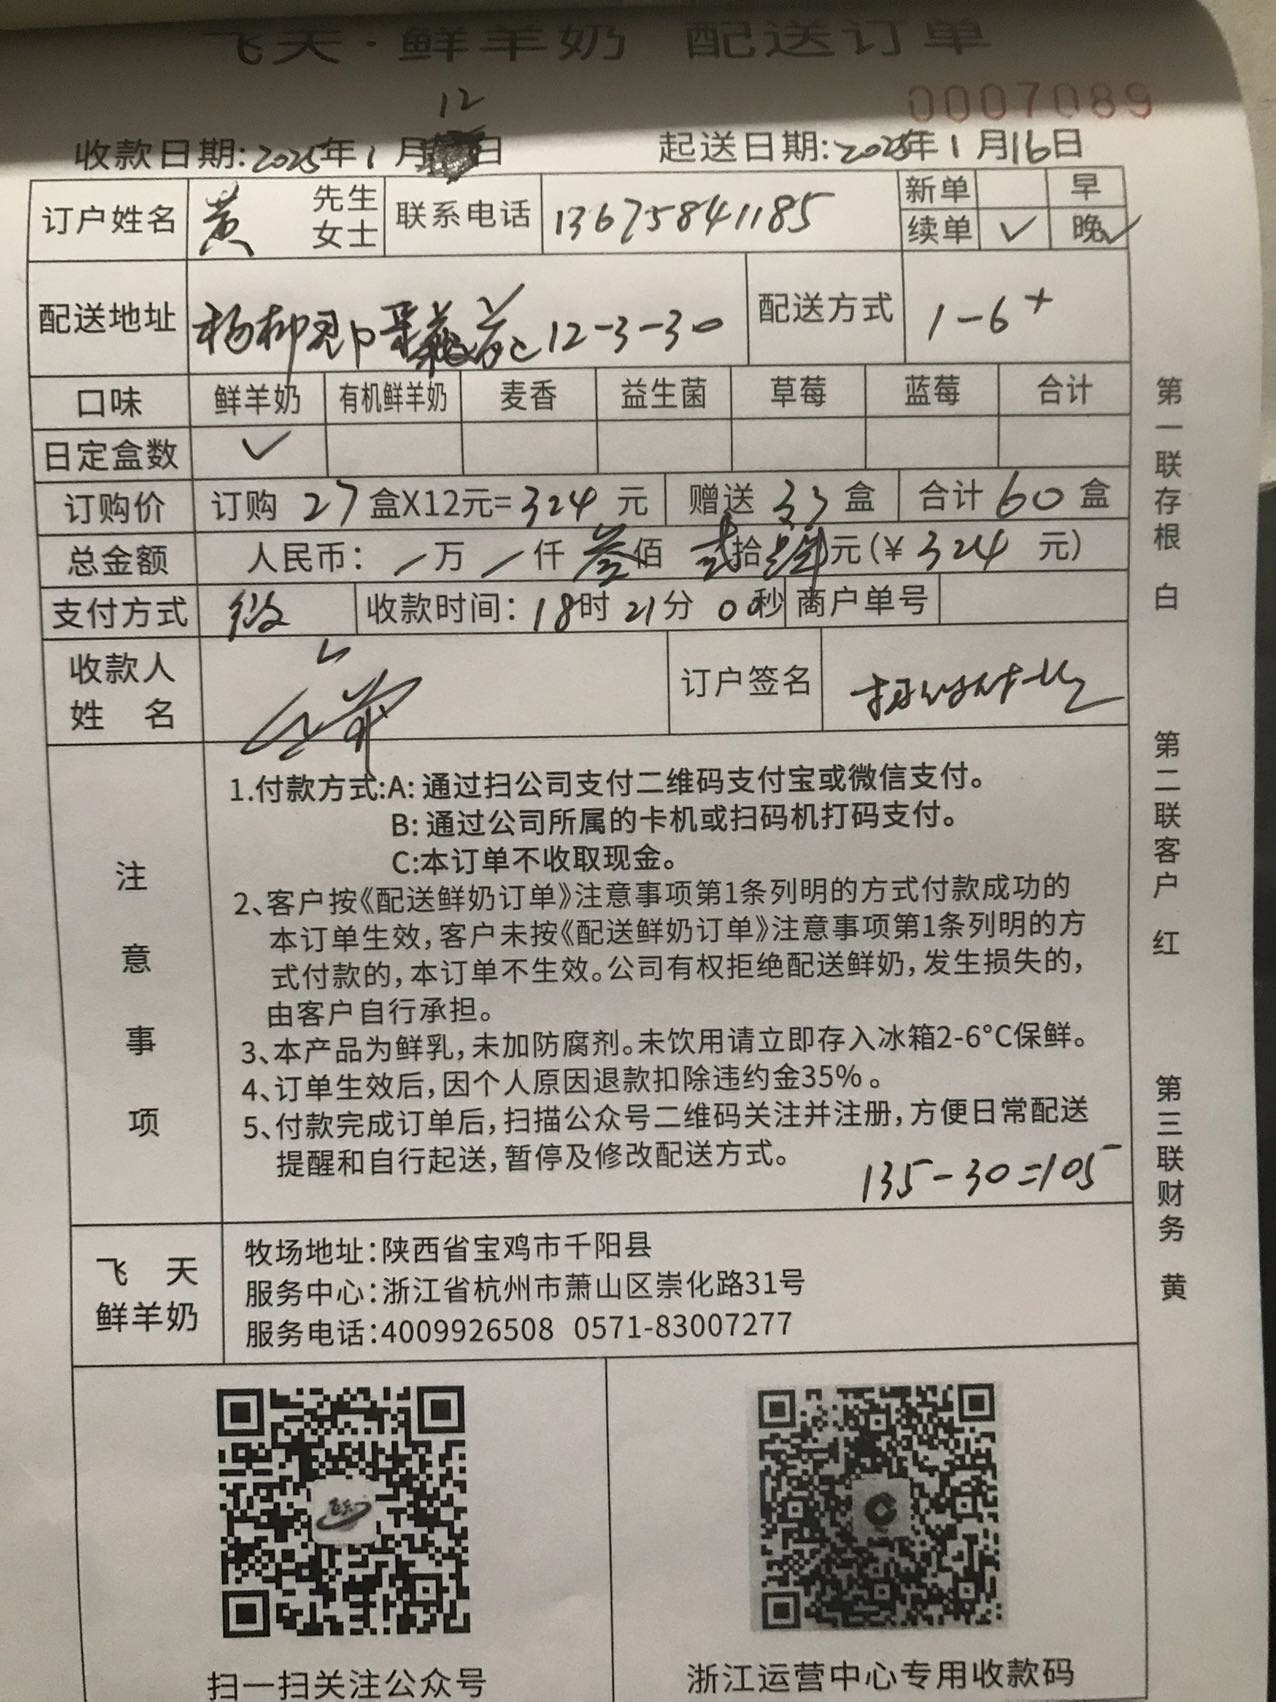 飞天·鲜羊奶 配送订单
0007089
收款日期:2025年1月12日 起送日期:2025年1月16日
订户姓名 黄 先生 女士 联系电话 13675841185 新单 早
续单 ✓ 晚✓
配送地址 杨柳郡 12-3-30 配送方式 1-6+
口味 鲜羊奶 有机鲜羊奶 麦香 益生菌 草莓 蓝莓 合计
日定盒数 ✓
订购价 订购 27 盒X12元=324 元 赠送 33 盒 合计 60 盒
总金额 人民币: / 万 / 仟 叁 佰 贰 拾 肆 元(¥ 324 元)
支付方式 微 收款时间: 18时 21分 00秒 商户单号
收款人
姓 名
订户签名 扫码付
注意事项
1.付款方式:A: 通过扫公司支付二维码支付宝或微信支付。
B: 通过公司所属的卡机或扫码机打码支付。
C:本订单不收取现金。
2、客户按《配送鲜奶订单》注意事项第1条列明的方式付款成功的
本订单生效,客户未按《配送鲜奶订单》注意事项第1条列明的方
式付款的,本订单不生效。公司有权拒绝配送鲜奶,发生损失的,
由客户自行承担。
3、本产品为鲜乳,未加防腐剂。未饮用请立即存入冰箱2-6°C保鲜。
4、订单生效后,因个人原因退款扣除违约金35%。
5、付款完成订单后,扫描公众号二维码关注并注册,方便日常配送
提醒和自行起送,暂停及修改配送方式。
135-30=105
飞 天
鲜羊奶
牧场地址:陕西省宝鸡市千阳县
服务中心:浙江省杭州市萧山区崇化路31号
服务电话:4009926508 0571-83007277
扫一扫关注公众号
浙江运营中心专用收款码
第一联存根 白
第二联客户 红
第三联财务 黄